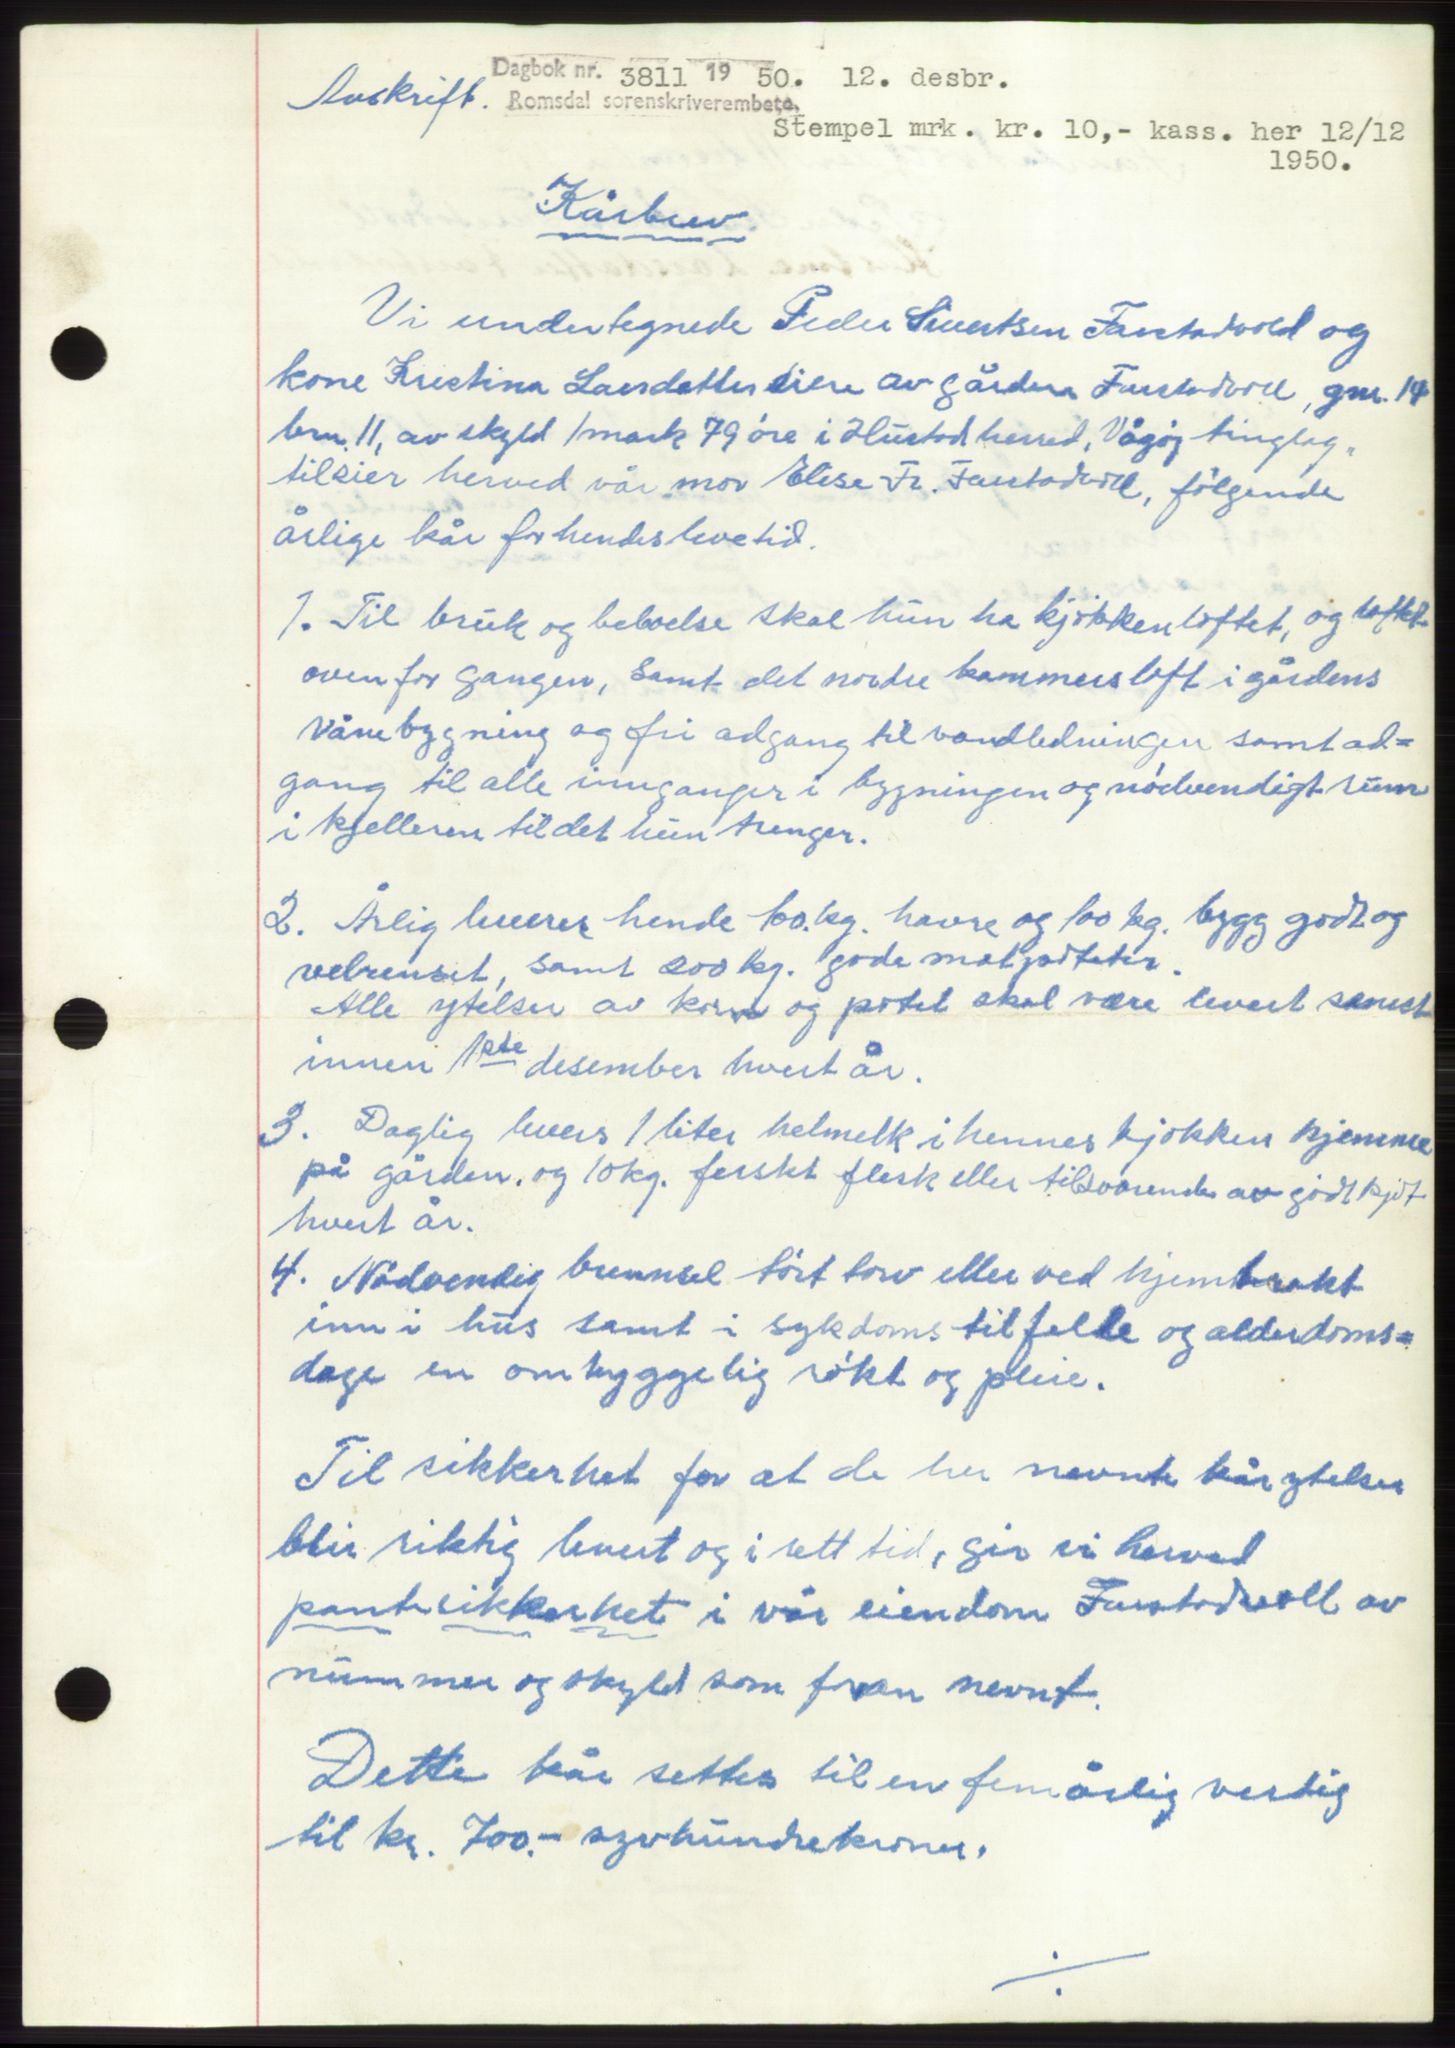 Dagbok nr. 3811 19 50. 12. desbr.
Avskrift. Romsdal sorenskriverembete.
Stempel mrk. kr. 10,- kass. her 12/12
1950.
Kårbrev
Vi undertegnede Peder Sivertsen Farstadvold og
kone Kristina Larsdatter eiere av gården Farstadvoll, gnr. 14
brn. 11, av skyld 1 mark 79 öre i Hustad herred, Vågøy tinglag,
tilsier herved vår mor Elise Fr. Farstadvoll, følgende
årlige kår for hendes levetid.
1. Til bruk og beboelse skal hun ha kjökkenloftet, og loftet
ovenfor gangen, samt det nordre kammersloft i gårdens
vånebygning og fri adgang til vandledningen samt ad=
gang til alle innganger i bygningen og nödvendigt rum
i kjelleren til det hun trenger.
2. Årlig leverer hende 100 kg. havre og 100 kg. bygg godt og
velrenset, samt 200 kg. gode matpoteter.
Alle ytelser av korn og potet skal være levert senest
innen 1ste desember hvert år.
3. Daglig levers 1 liter helmelk i hennes kjökken hjemme
på gården. og 10 kg. ferskt flesk eller tilsvarende av godt kjöt
hvert år.
4. Nödvendig brennsel tört torv eller ved hjembrakt
inn i hus samt i sykdomstilfelle og alderdoms=
dage en omhyggelig rökt og pleie.
Til sikkerhet for at de her nevnte kårytelser
blir riktig levert og i rett tid, gir vi herved
pantsikkerhet i vår eiendom Farstadvoll av
nummer og skyld som foran nevnt.
Dette kår settes til en femårlig verdig
til kr. 700.- syvhundrekroner.